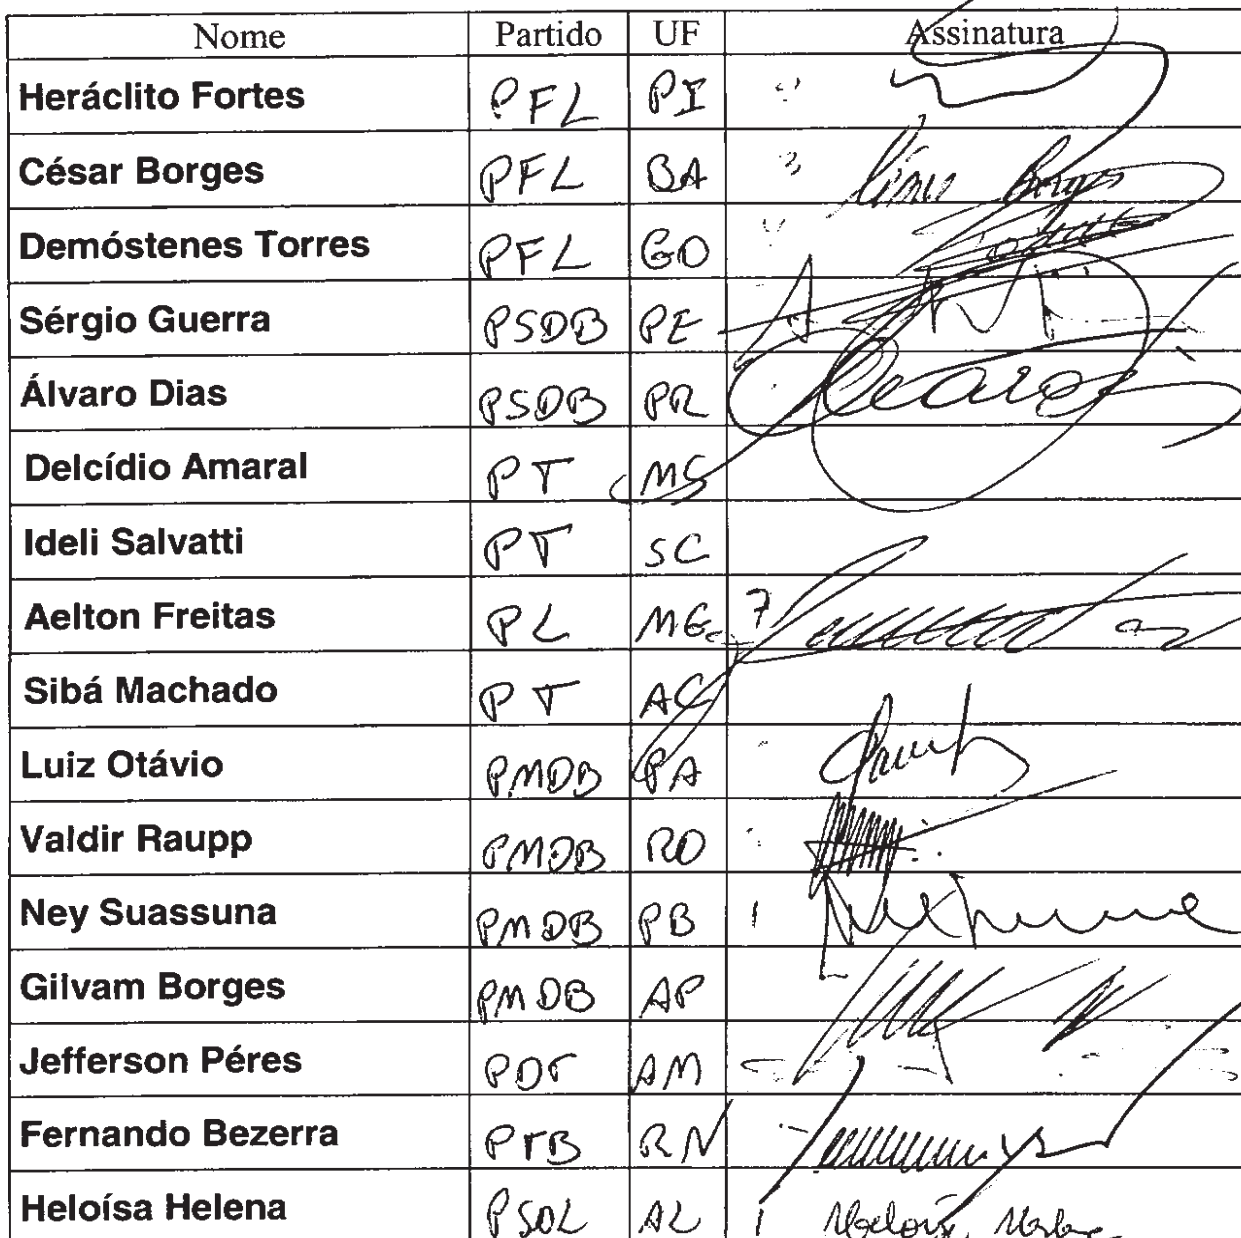 Nome Partido UF Assinatura
Heráclito Fortes PFL PI
César Borges PFL BA César Borges
Demóstenes Torres PFL GO
Sérgio Guerra PSDB PE
Álvaro Dias PSDB PR
Delcídio Amaral PT MS
Ideli Salvatti PT SC
Aelton Freitas PL MG 7
Sibá Machado PT AC
Luiz Otávio PMDB PA
Valdir Raupp PMDB RO
Ney Suassuna PMDB PB
Gilvam Borges PMDB AP
Jefferson Péres PDT AM
Fernando Bezerra PTB RN
Heloísa Helena PSOL AL Heloísa Helena